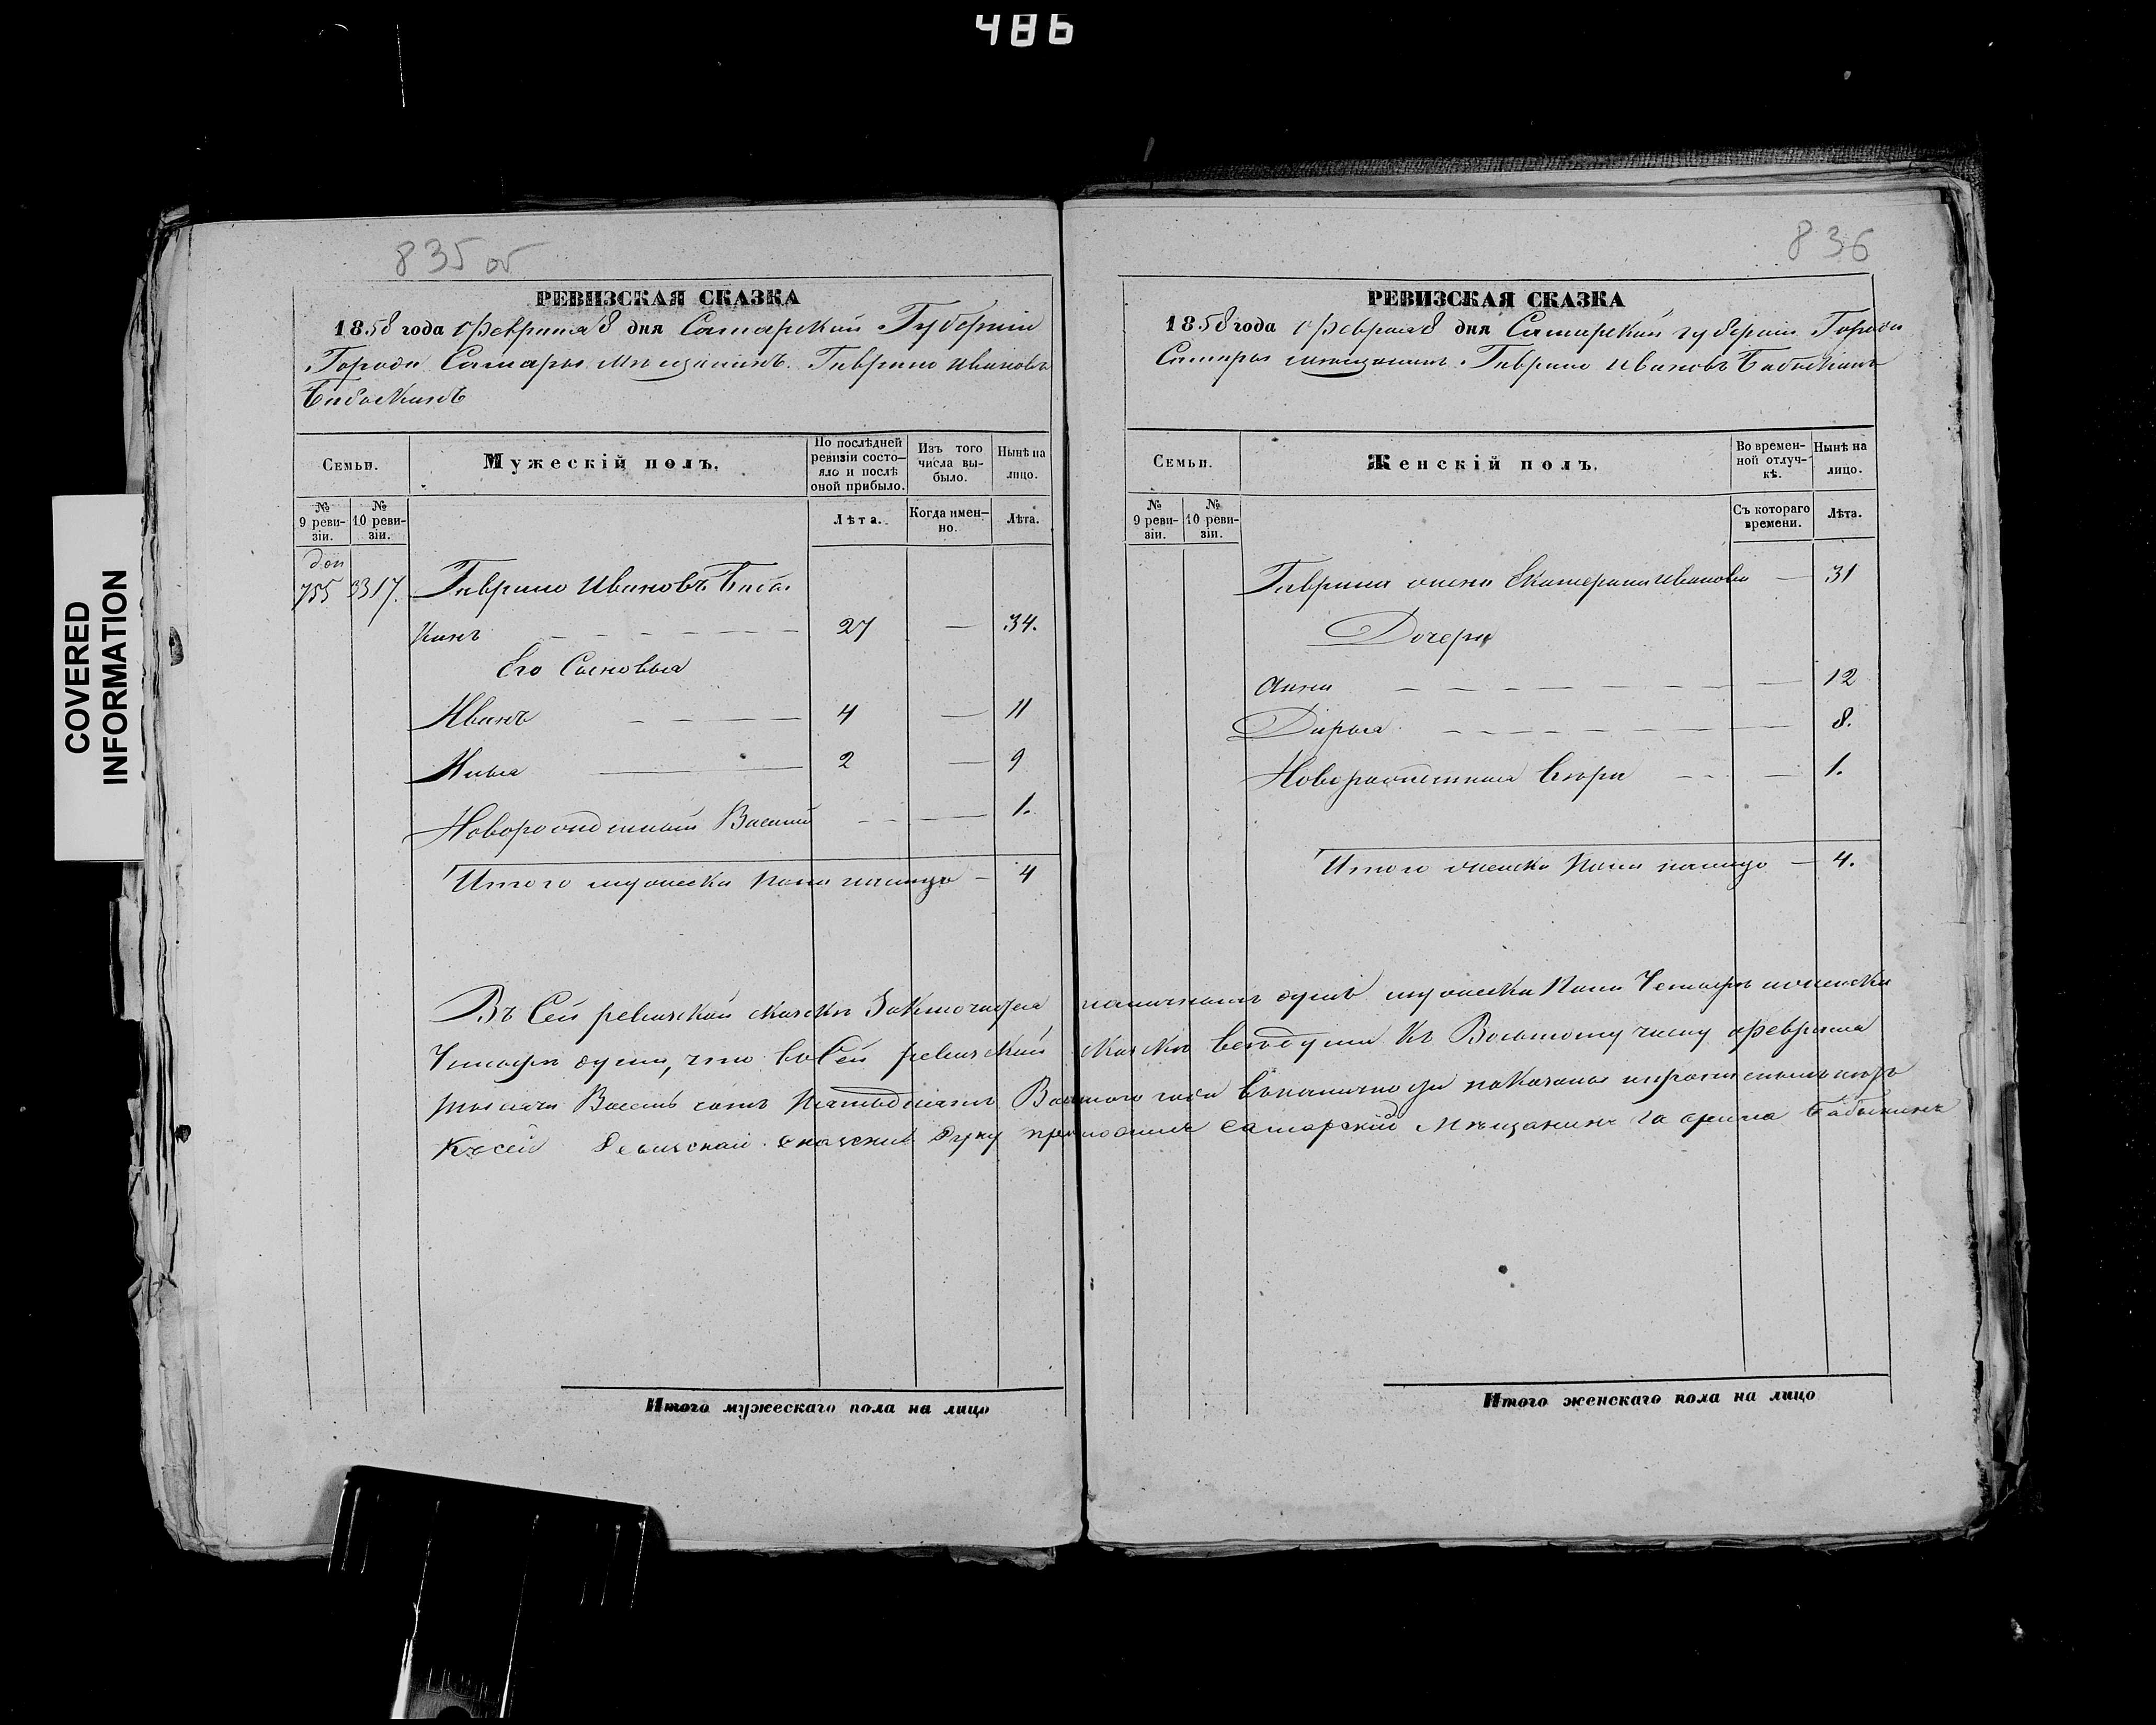 486
COVERED
INFORMATION
835 об
РЕВИЗСКАЯ СКАЗКА
1858 года Февраля 8 дня Самарской Губерніи
Города Самары Мѣщанинъ Гаврило Ивановъ
Бабыкинъ
Семьи.
Мужескій полъ.
По послѣдней ревизіи состояло и послѣ оной прибыло.
Изъ того числа выбыло.
Нынѣ на лицо.
№ 9 ревизіи.
№ 10 ревизіи.
Лѣта.
Когда именно.
Лѣта.
доп
755 3317. Гаврило Ивановъ Бабы
кинъ 27 — 34.
Его Сыновья
Иванъ 4 — 11
Илья 2 — 9
Новорожденный Василий — 1.
Итого мужеска пола налицо — 4
Итого мужескаго пола на лицо
836
РЕВИЗСКАЯ СКАЗКА
1858 года Февраля 8 дня Самарской губерніи Города
Самары мѣщанинъ Гаврило Ивановъ Бабыкинъ
Семьи.
Женскій полъ.
Во временной отлучкѣ.
Нынѣ на лицо.
№ 9 ревизіи.
№ 10 ревизіи.
Съ котораго времени.
Лѣта.
Гаврила жена Екатерина Иванова — 31
Дочери
Анна — 12
Дарья — 8.
Новорожденная — 1.
Итого женска пола налицо — 4.
Въ Сей ревизской сказкѣ Заключается наличныхъ душъ мужеска пола Четыре и женска
Четыре души, что въ Сей ревизской сказкѣ все души Къ Восьмому числу Февраля
тысяча Восемь сотъ Пятьдесятъ Восьмого года въ наличности показаны
Ксей Ревизской сказске Руку приложилъ Самарский Мещанинъ Гаврила Бабыкинъ
Итого женскаго пола на лицо